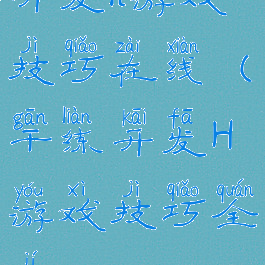 开发H游戏
jì qiǎo zài xiàn
技巧在线（
gān liàn kāi fā
干练开发H
yóu xì jì qiǎo quán
游戏技巧全
jí